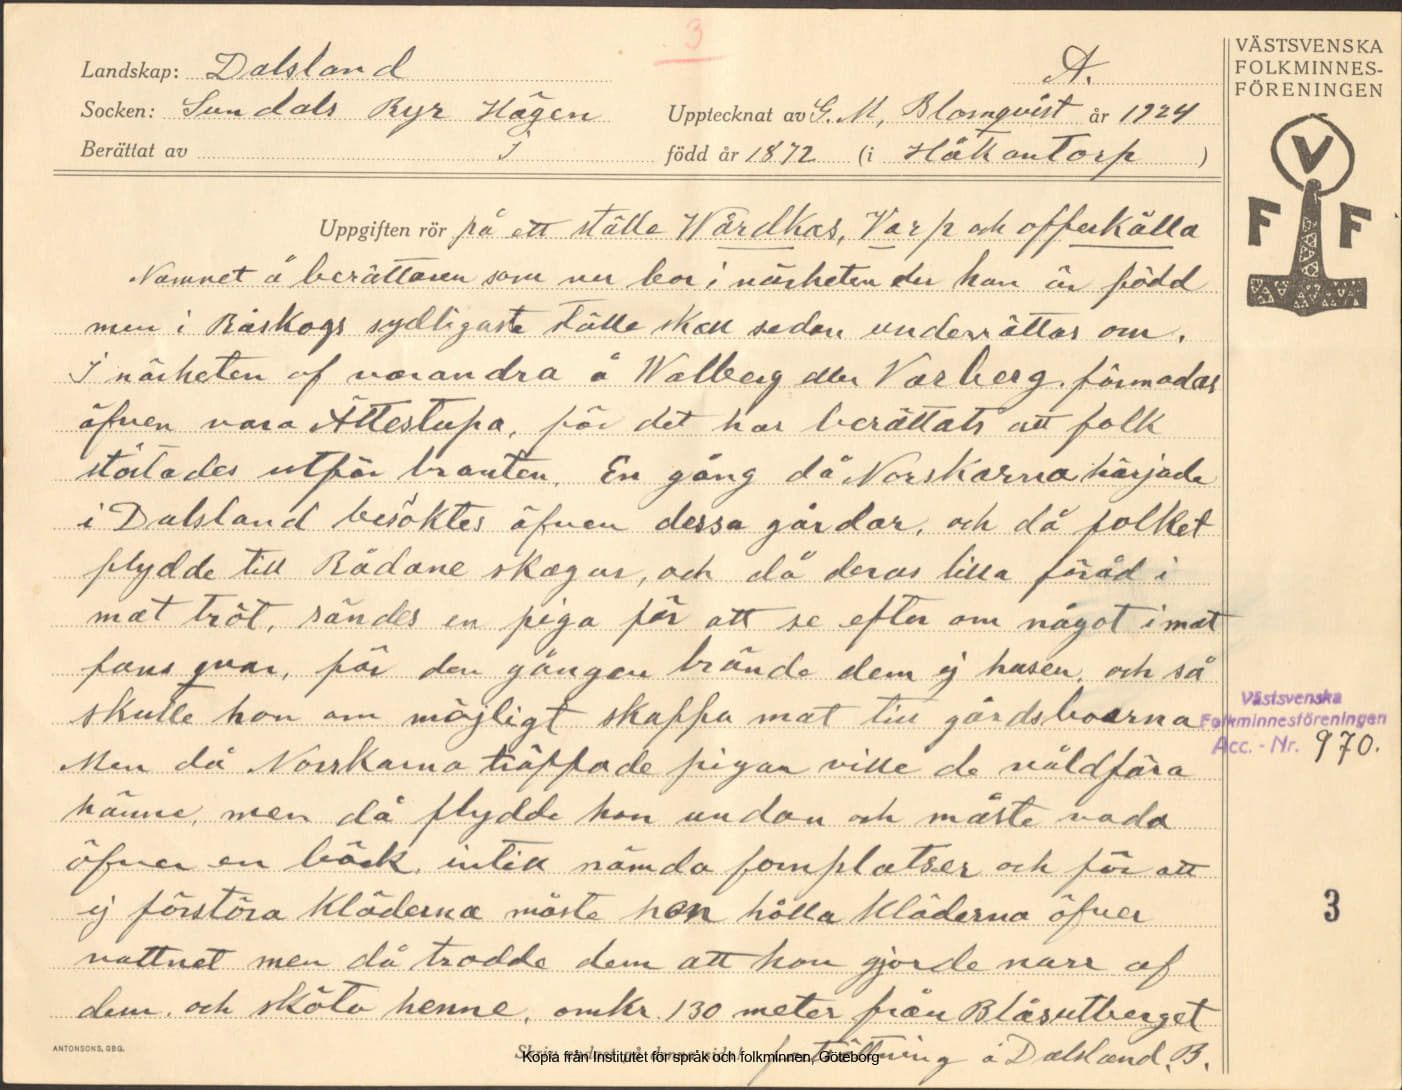 3
Landskap: Dalsland
A.
Socken: Sundals Ryr Hägen Upptecknat av G. M, Blomqvist år 1924
Berättat av född år 1872 (i Håkantorp )
Uppgiften rör på ett ställe Wårdkas, Varp och offerkälla
Namnet å berättaren som nu bor i närheten der han är född
men i Råskogs sydligaste ställe skall sedan underrättas om.
I närheten af varandra å Walberg eller Varberg. förmodas
äfven vara Ättestupa, för det har berättats att folk
störtades utför branten. En gång då Norskarna härjade
i Dalsland besöktes äfven dessa gårdar, och då folket
flydde till Rådane skogar, och då deras lilla föråd i
mat tröt, sändes en piga för att se efter om något i mat
fans qvar, för den gången brände dem ej husen, och så
skulle hon om möjligt skaffa mat till gårdsboarna
Men då Norskarna träffade pigan ville de våldföra
hänne, men då flydde hon undan och måste vada
öfver en bäck, intill nämda fornplatser och för att
ej förstöra kläderna måste hon hålla kläderna öfver
vattnet men då trodde dem att hon gjorde narr af
dem. och sköto henne, omkr. 130 meter från Blåsutberget
fortsättning å Dalsland. B.
ANTONSONS, GBG.
Kopia från Institutet för språk och folkminnen, Göteborg
VÄSTSVENSKA
FOLKMINNES-
FÖRENINGEN
V
F F
Västsvenska
Folkminnesföreningen
Acc. - Nr. 970.
3